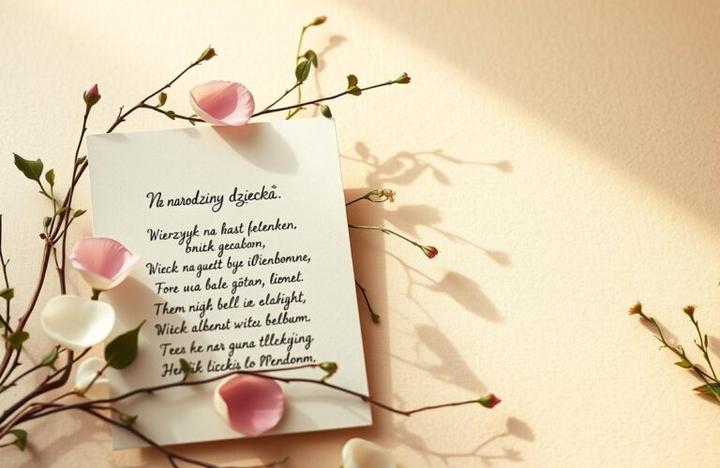 Na narodziny dziecka.
Wierzyyk na hast felenken,
bnitk gecabam,
Wieck na guett bye iDienbomne,
Fore wa bale götan, liomet.
Them nigk bell ire elakight,
Wiick albenst witeı belbum.
Tees ke nar guna tllekjing
lickis lo